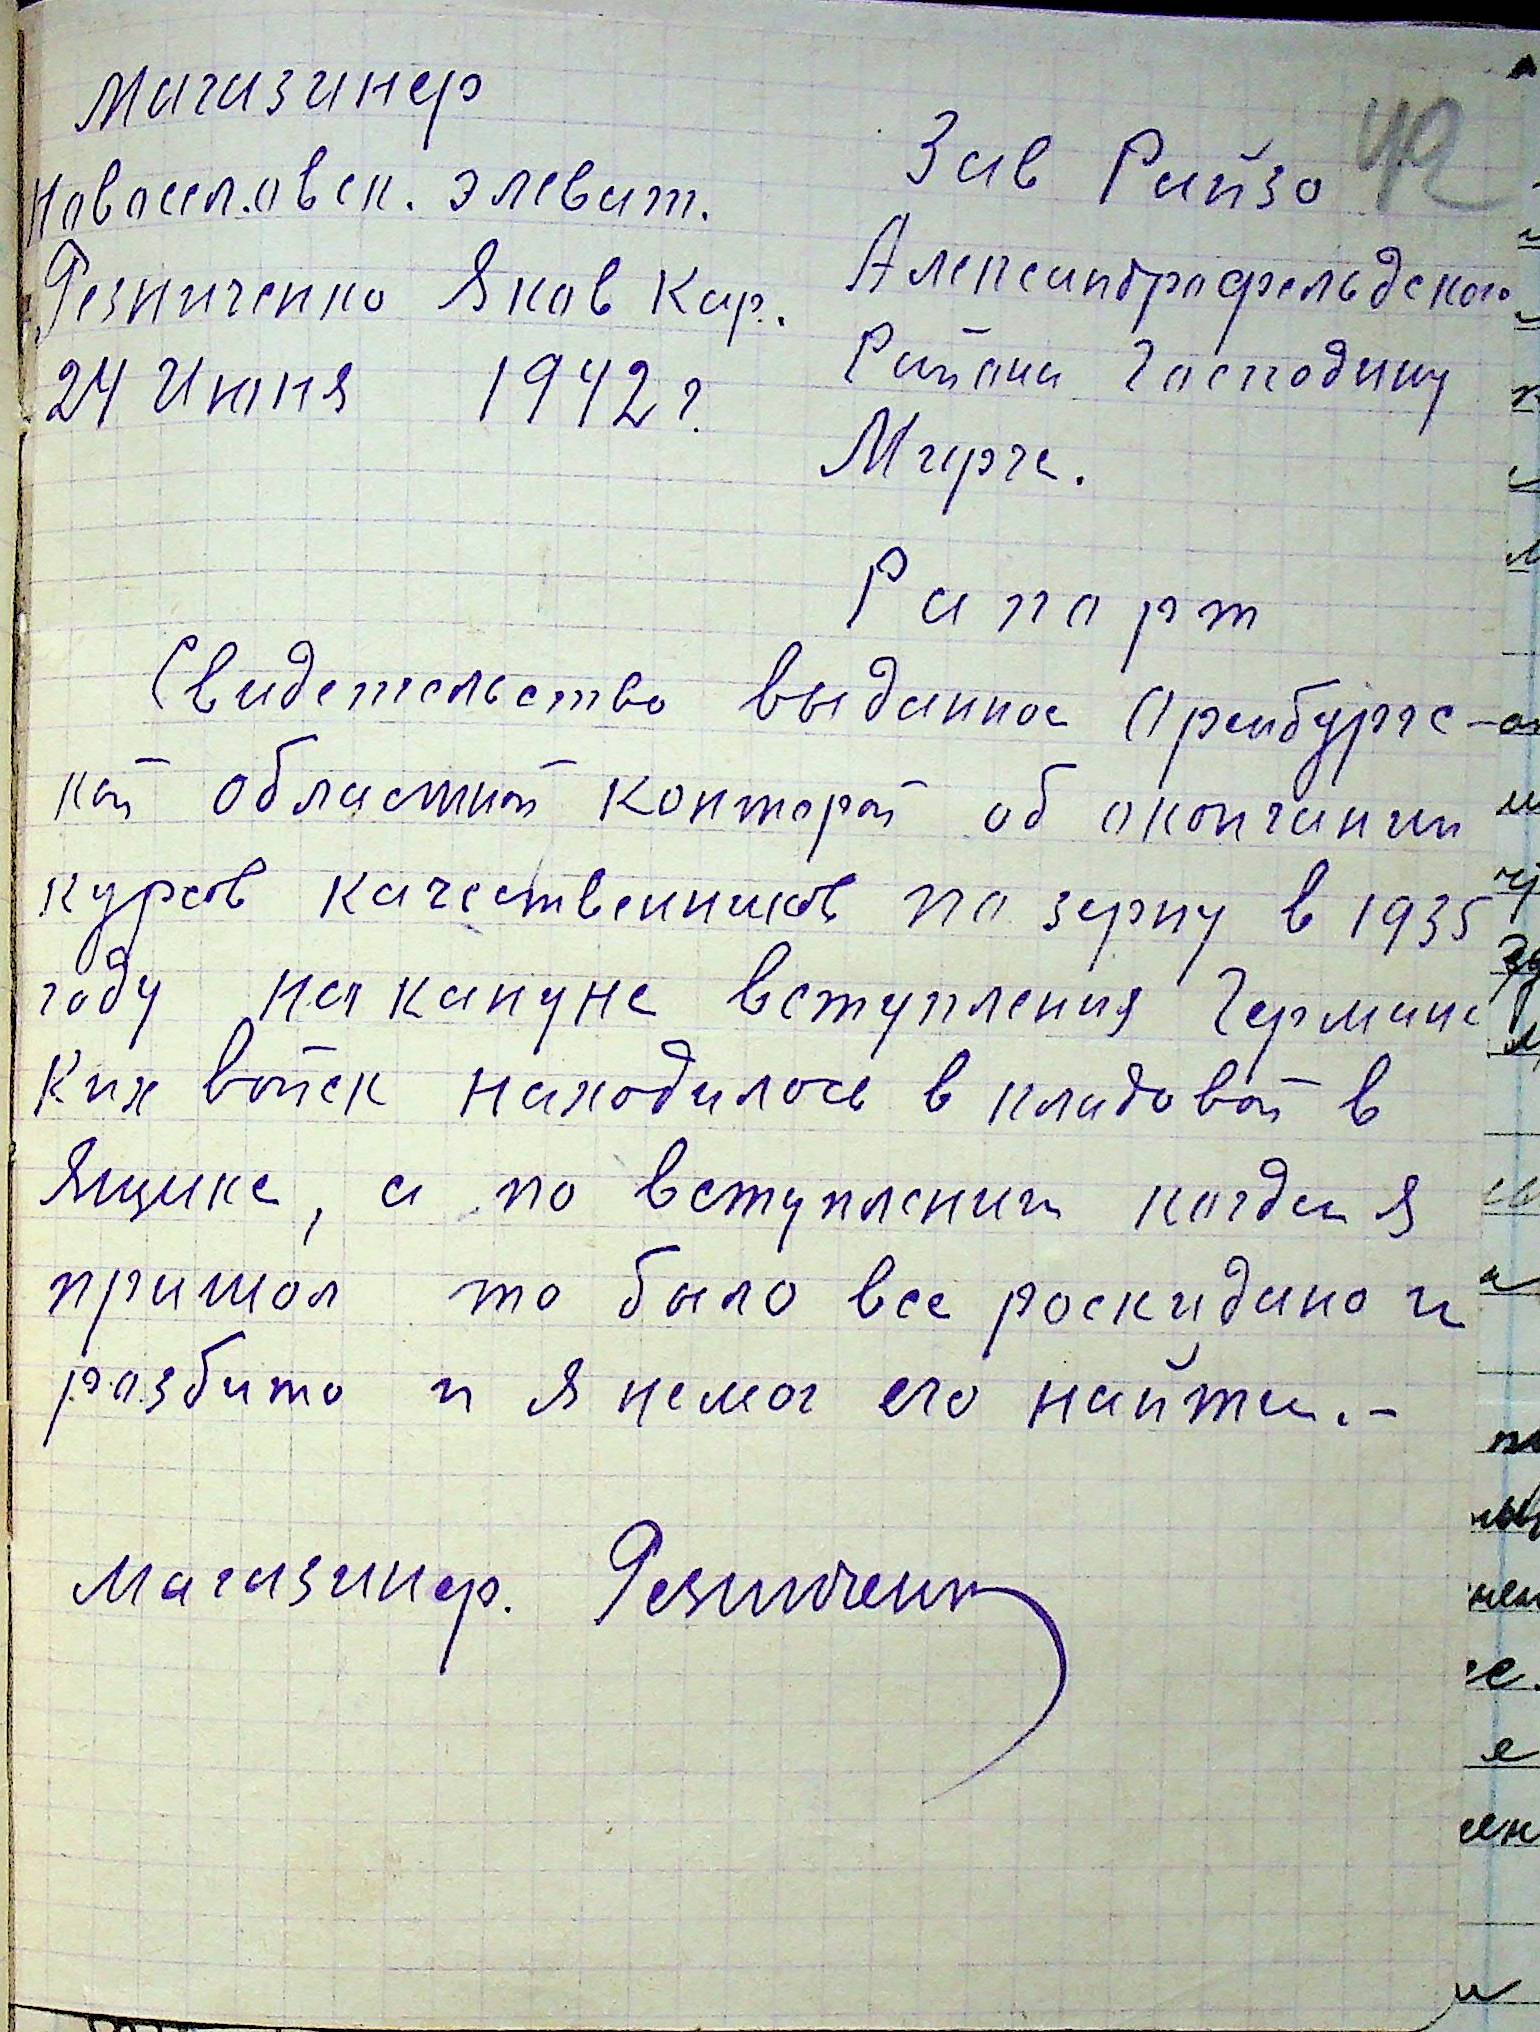 Магазинер
Новоселовск. элеват.
Резниченко Яков Кар.
24 Июня 1942 г.
42
Зав Райзо
Александрофельдского
Района Господину
Мирче.
Рапорт
Свидетельство выданное Оренбургс-
кой областной конторой об окончании
курсов качественников по зерну в 1935
году на кануне вступления Германс
ких войск находилось в кладовой в
Ящике, а по вступлении когда я
пришол то было все роскидано и
розбито и я немог его найти.-
Магазинер. Резниченко